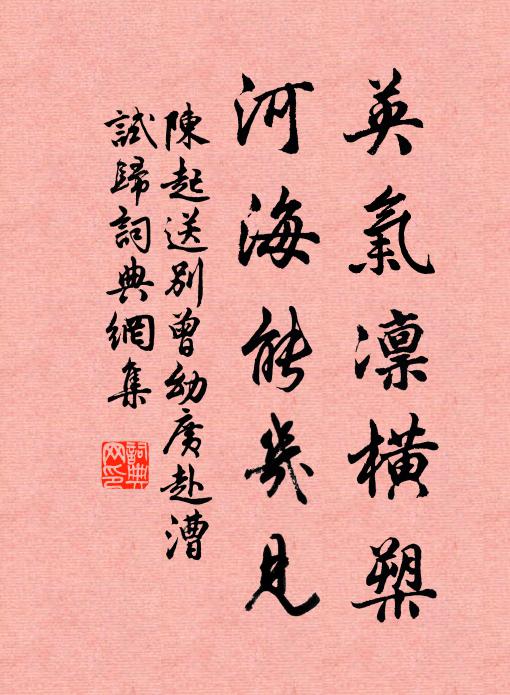 英氣凛橫槊
河海能幾見
陳起送別曾幼度赴漕
試歸詞典網集
詞典網印